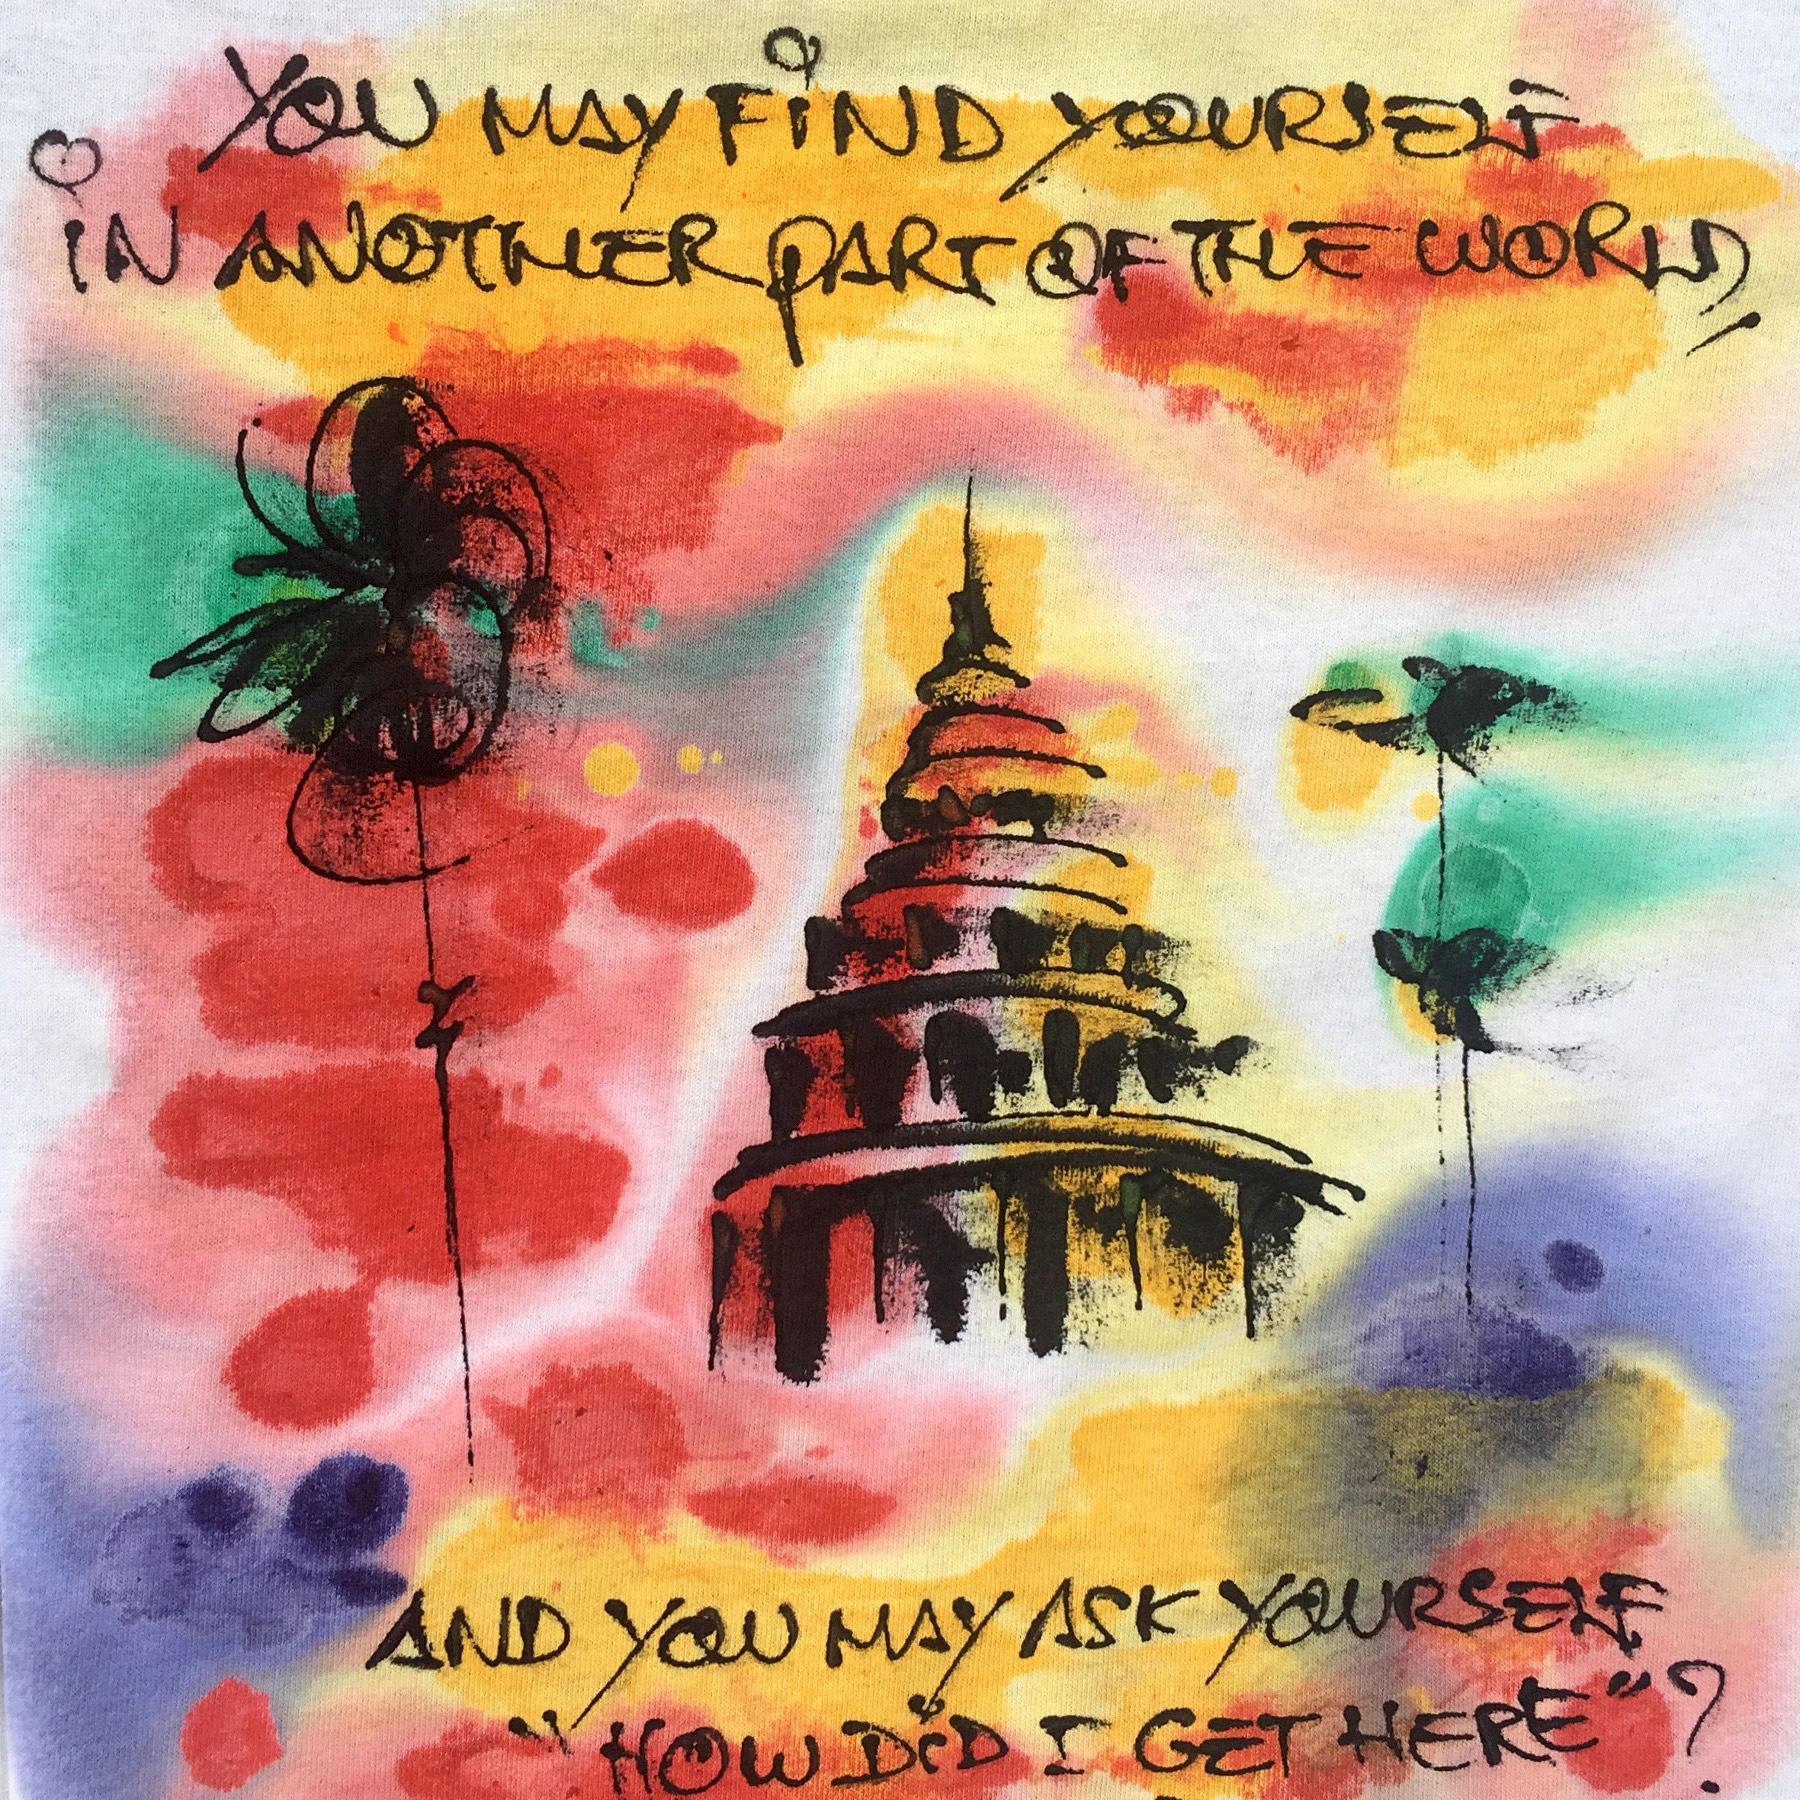 YOU MAY FiND YOURSELF
iN ANOTHER PART OF THE WORLD,
AND YOU MAY ASK YOURSELF
"HOW DiD I GET HERE"?